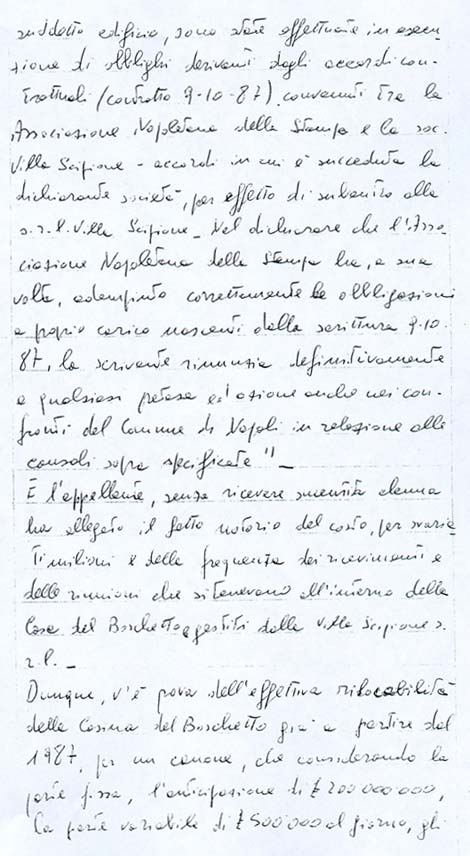 suddetto edificio, sono state effettuate in esecu-
zione di obblighi derivanti dagli accordi con-
trattuali (contratto 9-10-87) convenuti tra la
Associazione Napoletana della Stampa e la soc.
Villa Scipione - accordi in cui è succeduta la
dichiarante società, per effetto di subentro alla
s.r.l. Villa Scipione - Nel dichiarare che l'Asso-
ciazione Napoletana della Stampa ha, a sua
volta, adempiuto correttamente le obbligazioni
a proprio carico nascenti dalla scrittura 9-10-
87, la scrivente rinunzia definitivamente
a qualsiasi pretesa ed azione anche nei con-
fronti del Comune di Napoli in relazione alle
sopra specificate" -
E l'appellante, senza ricevere smentita alcuna
ha allegato il fatto notorio del costo, per svaria-
ti milioni e della frequenza dei ricevimenti e
delle riunioni che si tenevano all'interno della
Casa del Boschetto gestiti dalla Villa Scipione s.
r.l. -
Dunque, v'è prova dell'effettiva rilocabilità
della Casina del Boschetto già a partire dal
1987, per un canone, che considerando la
parte fissa, l'anticipazione di £ 200.000.000,
la parte variabile di £ 500.000 al giorno, gli